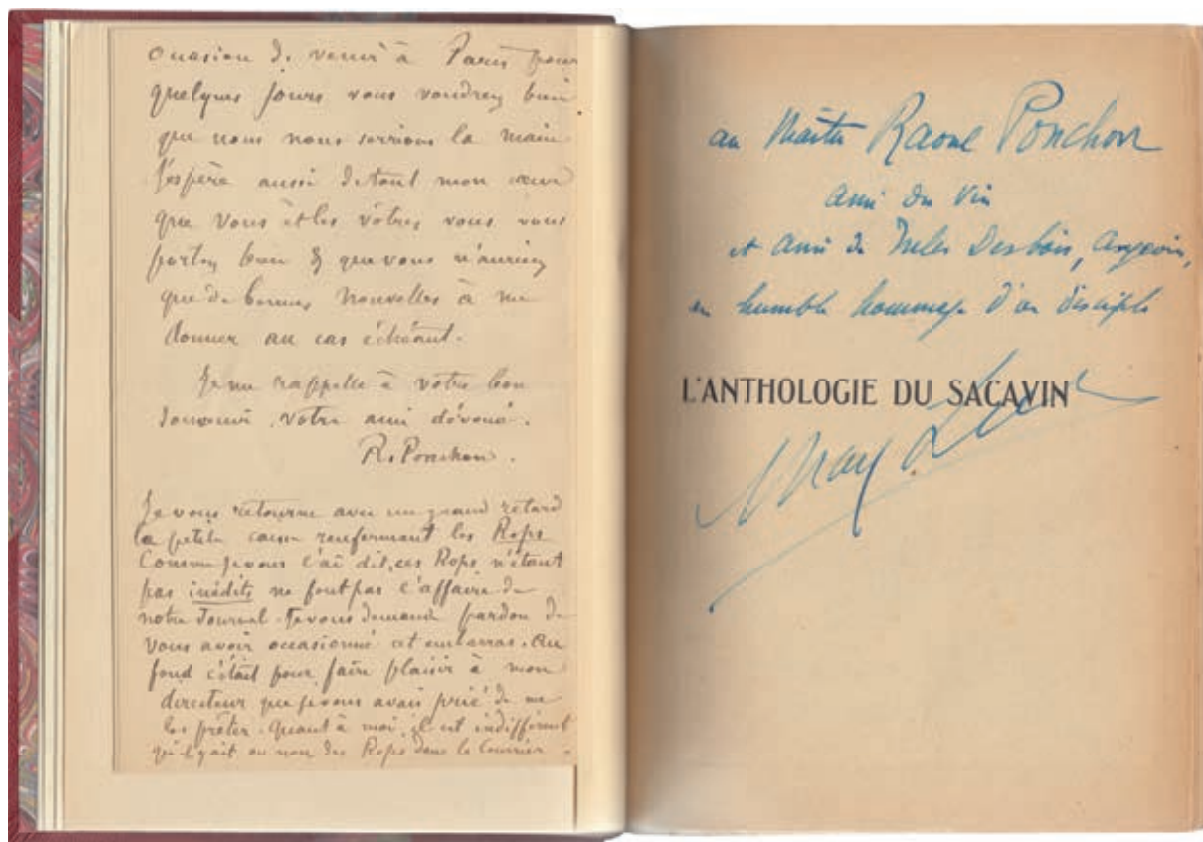 occasion de venir à Paris pour
quelques jours vous voudrez bien
que nous nous serrions la main
J'espère aussi de tout mon cœur
que vous et les vôtres vous vous
portez bien & que vous n'auriez
que de bonnes nouvelles à me
donner au cas échéant.
Je me rappelle à votre bon
souvenir votre ami dévoué.
R. Ponchon.
Je vous retourne avec un grand retard
la petite caisse renfermant les Rops
Comme je vous l'ai dit, ces Rops n'étant
pas inédits ne font pas l'affaire de
notre Journal. Je vous demande pardon de
vous avoir occasionné cet embarras. Au
fond c'était pour faire plaisir à mon
directeur que je vous avais prié de me
les prêter. Quant à moi, il est indifférent
qu'il y ait ou non des Rops dans le Courrier.
au Maître Raoul Ponchon
ami du vin
et ami de Jules Desbois, angevin,
en humble hommage d'un disciple
L'ANTHOLOGIE DU SACAVIN